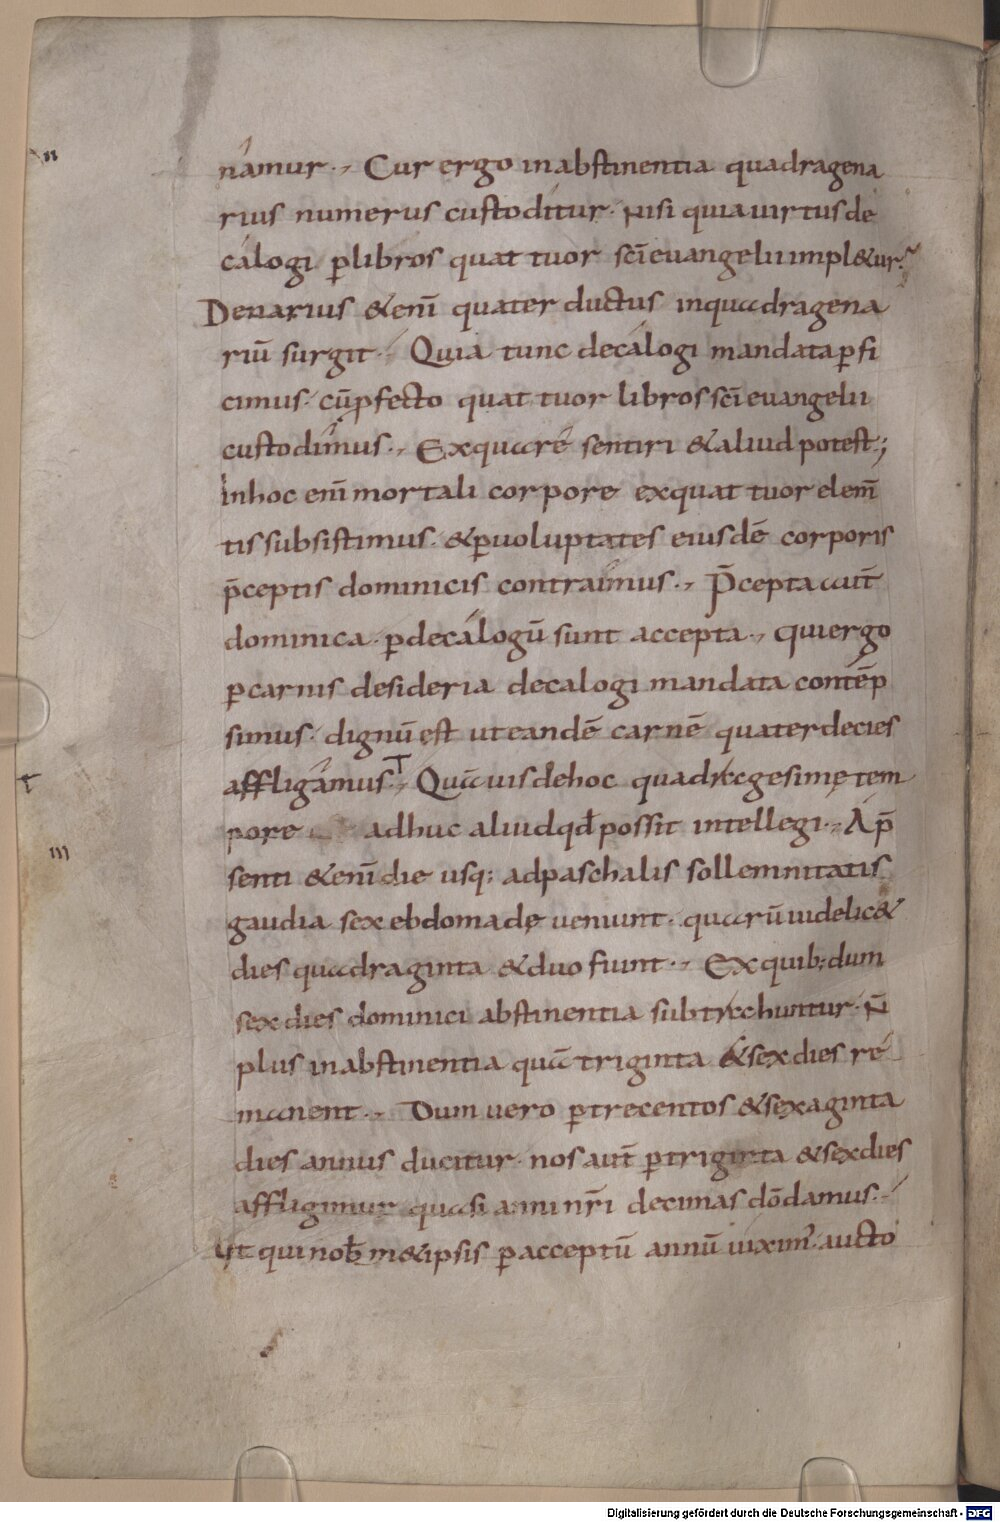 n
namur. Cur ergo inabstinentia quadragena
rius numerus custoditur. Nisi quia uirtus de
calogi p̄ libros quattuor sc̄i euangelii impl&ur.
Denarius &eni̅ quater ductus inquadragena
riū surgit. Quia tunc decalogi mandata p̄fi
cimus. cū p̄fecto quattuor libros sc̄i euangelii
custodimus. Exqua re sentiri &aliud potest;
Inhoc eni̅ mortali corpore exquattuor elem̅
tis subsistimus. &p̄uoluptates eiusdē corporis
p̄ceptis dominicis contraimus. P̄cepta aut̄
dominica p̄decalogū sunt accepta. qui ergo
p̄carnis desideria decalogi mandata contēp
simus. dignū est ut eandē carnē quaterdecies
affligamus. Quāuis dehoc quadragesimę tem
T
pore adhuc aliud qđ possit intellegi. A p̄
III
senti &eni̅ die usq; adpaschalis sollemnitatis
gaudia sex ebdomadę ueniunt. quarū uidelic&
dies quadraginta &duo fiunt. Exquib; dum
sex dies dominici abstinentia subtrahuntur. N̄
plus inabstinentia quā triginta &sex dies re
manent. Dum uero p̄trecentos &sexaginta
dies annus ducitur. nos aut̄ p̄triginta &sex dies
affligimur quasi anni nr̄i decimas dō damus.
Ut qui nob̄ m&ipsis p̄acceptū annū uixim'. aucto
Digitalisierung gefördert durch die Deutsche Forschungsgemeinschaft - DFG